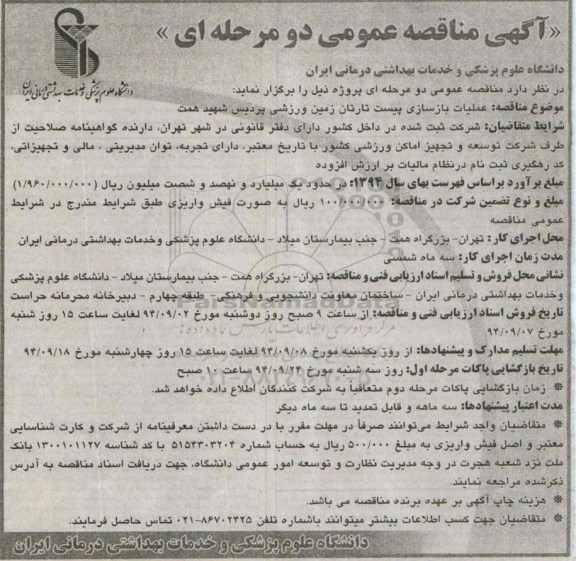 «آگهی مناقصه عمومی دو مرحله ای »
دانشگاه علوم پزشکی و خدمات بهداشتی درمانی ایران
دانشگاه علوم پزشکی و خدمات بهداشتی درمانی ایران
در نظر دارد مناقصه عمومی دو مرحله ای پروژه ذیل را برگزار نماید:
موضوع مناقصه: عملیات بازسازی پیست تارتان زمین ورزشی پردیس شهید همت
شرایط متقاضیان: شرکت ثبت شده در داخل کشور دارای دفتر قانونی در شهر تهران، دارنده گواهینامه صلاحیت از
طرف شرکت توسعه و تجهیز اماکن ورزشی کشور با تاریخ معتبر، دارای تجربه، توان مدیریتی ، مالی و تجهیزاتی،
کد رهگیری ثبت نام درنظام مالیات بر ارزش افزوده
مبلغ برآورد براساس فهرست بهای سال ۱۳۹۴: در حدود یک میلیارد و نهصد و شصت میلیون ریال (۱/۹۶۰/۰۰۰/۰۰۰)
مبلغ و نوع تضمین شرکت در مناقصه: ۱۰۰/۰۰۰/۰۰۰ ریال به صورت فیش واریزی طبق شرایط مندرج در شرایط
عمومی مناقصه
محل اجرای کار : تهران- بزرگراه همت - جنب بیمارستان میلاد - دانشگاه علوم پزشکی وخدمات بهداشتی درمانی ایران
مدت زمان اجرای کار: سه ماه شمسی
نشانی محل فروش و تسلیم اسناد ارزیابی فنی و مناقصه: تهران- بزرگراه همت - جنب بیمارستان میلاد - دانشگاه علوم پزشکی
وخدمات بهداشتی درمانی ایران - ساختمان معاونت دانشجویی و فرهنگی - طبقه چهارم - دبیرخانه محرمانه حراست
تاریخ فروش اسناد ارزیابی فنی و مناقصه: از ساعت ۹ صبح روز دوشنبه مورخ ۹۴/۰۹/۰۲ لغایت ساعت ۱۵ روز شنبه
مورخ ۹۴/۰۹/۰۷
مهلت تسلیم مدارک و پیشنهادها: از روز یکشنبه مورخ ۹۴/۰۹/۰۸ لغایت ساعت ۱۵ روز چهارشنبه مورخ ۹۴/۰۹/۱۸
تاریخ بازگشایی پاکات مرحله اول: روز سه شنبه مورخ ۹۴/۰۹/۲۴ ساعت ۱۰ صبح
* زمان بازگشایی پاکات مرحله دوم متعاقباً به شرکت کنندگان اطلاع داده خواهد شد.
مدت اعتبار پیشنهادها: سه ماهه و قابل تمدید تا سه ماه دیگر
* متقاضیان واجد شرایط می‌توانند صرفاً در مهلت مقرر با در دست داشتن معرفینامه از شرکت و کارت شناسایی
معتبر و اصل فیش واریزی به مبلغ ۵۰۰/۰۰۰ ریال به حساب شماره ۵۱۵۴۳۰۳۲۰۴ با کد شناسه ۱۳۰۰۱۰۱۱۲۷ بانک
ملت نزد شعبه هجرت در وجه مدیریت نظارت و توسعه امور عمومی دانشگاه، جهت دریافت اسناد مناقصه به آدرس
ذکرشده مراجعه نمایند.
* هزینه چاپ آگهی بر عهده برنده مناقصه می باشد.
* متقاضیان جهت کسب اطلاعات بیشتر میتوانند باشماره تلفن ۸۶۷۰۲۴۲۵-۰۲۱ تماس حاصل فرمایند.
دانشگاه علوم پزشکی و خدمات بهداشتی درمانی ایران